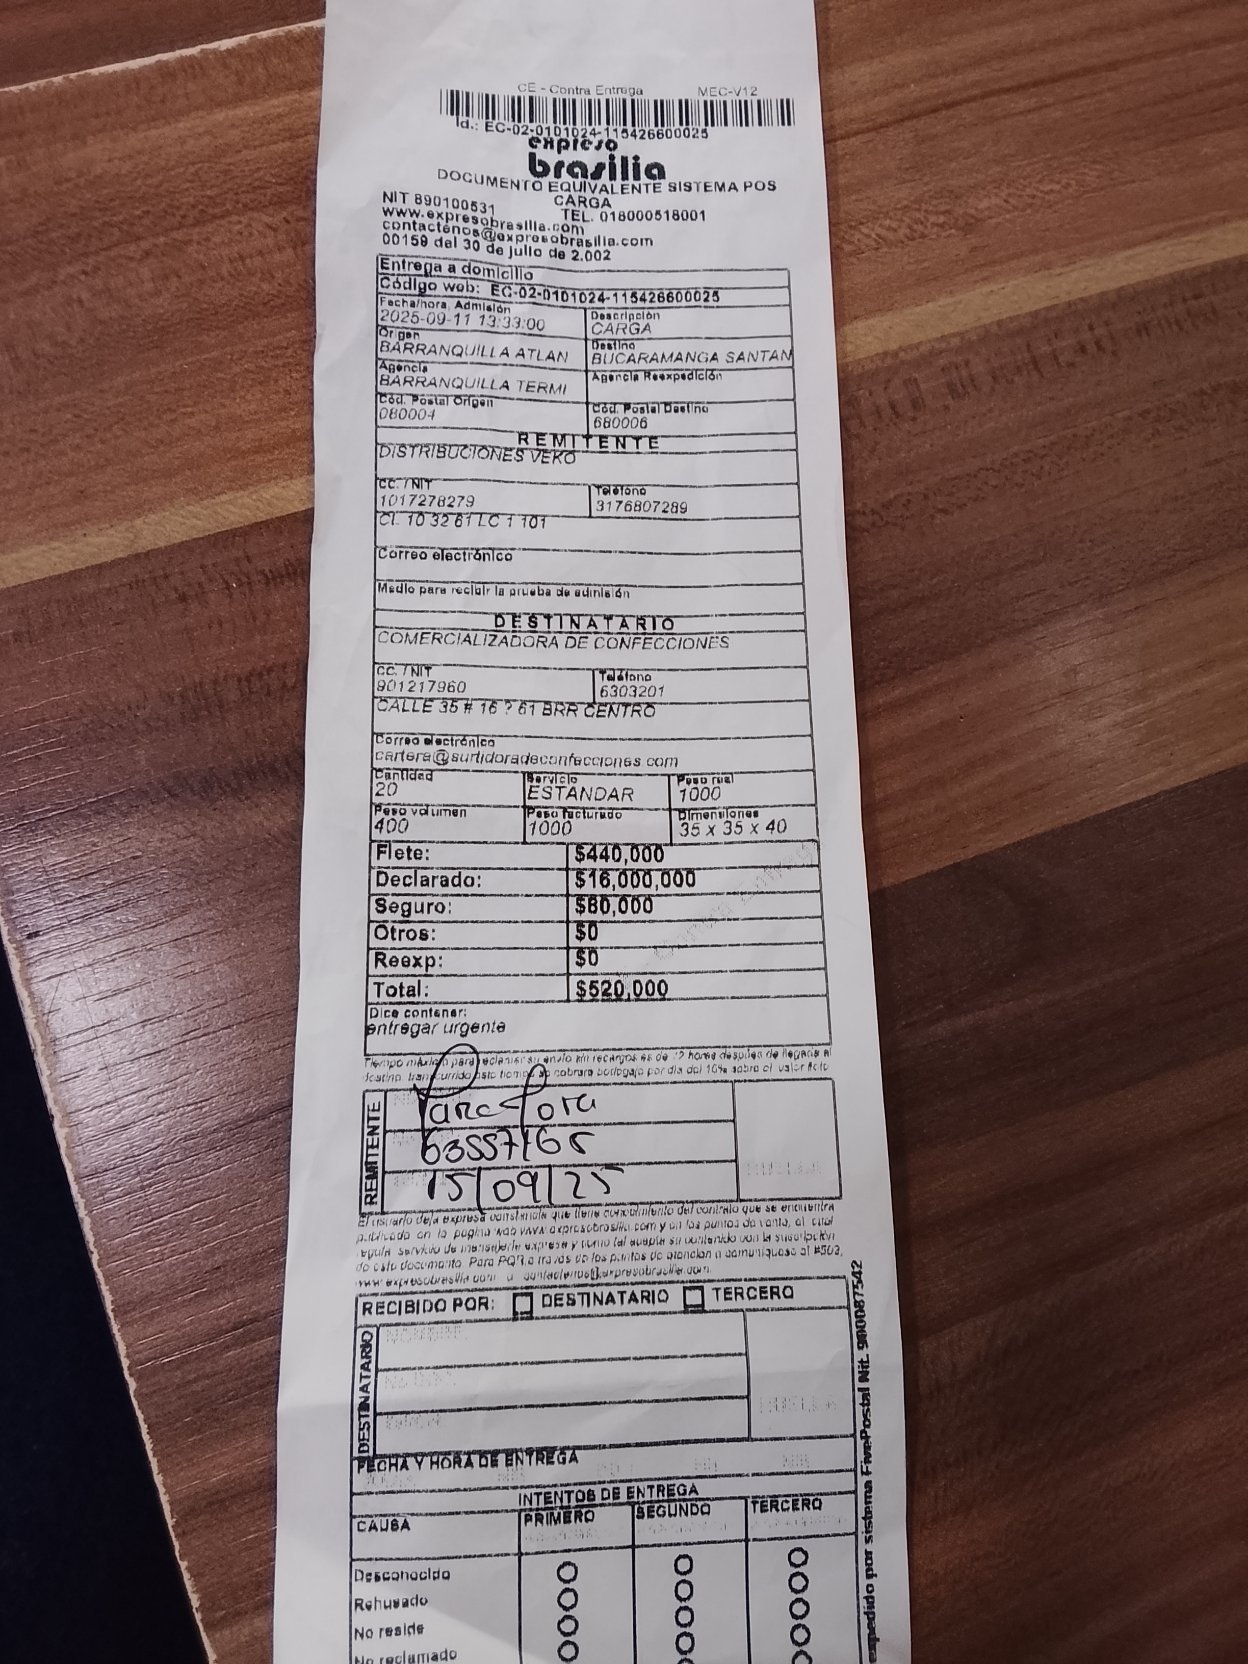 CE - Contra Entrega MEC-V12
Id.: EC-02-0101024-115426600025
expreso
brasilia
DOCUMENTO EQUIVALENTE SISTEMA POS
CARGA
NIT 890100531 TEL. 018000518001
www.expresobrasilia.com
contactenos@expresobrasilia.com
00159 del 30 de julio de 2.002
Entrega a domicilio
Código web: EC-02-0101024-115426600025
Fecha/hora. Admisión Descripción
2025-09-11 13:33:00 CARGA
Origen Destino
BARRANQUILLA ATLAN BUCARAMANGA SANTAN
Agencia Agencia Reexpedición
BARRANQUILLA TERMI
Cód. Postal Origen Cód. Postal Destino
080004 680006
REMITENTE
DISTRIBUCIONES VEKO
CC. / NIT Teléfono
1017278279 3176807289
CL 10 32 61 LC 1 101
Correo electrónico
Medio para recibir la prueba de admisión
DESTINATARIO
COMERCIALIZADORA DE CONFECCIONES
CC. / NIT Teléfono
901217960 6303201
CALLE 35 # 16 ? 61 BRR CENTRO
Correo electrónico
cartera@surtidoradeconfecciones.com
Cantidad Servicio Peso real
20 ESTANDAR 1000
Peso volumen Peso facturado Dimensiones
400 1000 35 x 35 x 40
Flete: $440,000
Declarado: $16,000,000
Seguro: $80,000
Otros: $0
Reexp: $0
Total: $520,000
Dice contener:
entregar urgente
Tiempo máximo para reclamar su envío sin recargos es de 72 horas después de llegada al
destino, transcurrido este tiempo se cobrara bodegaje por día del 10% sobre el valor flete
REMITENTE
63557165
15/09/25
El usuario deja expresa constancia que tiene conocimiento del contrato que se encuentra
publicado en la pagina web www.expresobrasilia.com y en los puntos de venta, el cual
regula servicio de mensajería expresa y como tal acepta su contenido con la suscripción
de este documento. Para PQR a través de los puntos de atención o comuníquese al #503,
www.expresobrasilia.com o contactenos@expresobrasilia.com.
RECIBIDO POR: DESTINATARIO TERCERO
DESTINATARIO
FECHA Y HORA DE ENTREGA
INTENTOS DE ENTREGA
CAUSA PRIMERO SEGUNDO TERCERO
Desconocido
Rehusado
No reside
No reclamado
expedido por sistema FivePostal Nit. 900087542